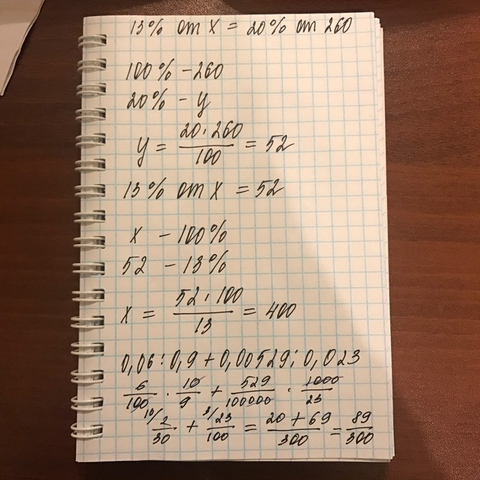 13% от X = 20% от 260
100% - 260
20% - y
y = 20 · 260 / 100 = 52
13% от X = 52
X - 100%
52 - 13%
X = 52 · 100 / 13 = 400
0,06 : 0,9 + 0,00529 : 0,023
6/100 · 10/9 + 529/100000 · 1000/23
10/ 2/30 + 3/ 23/100 = 20 + 69 / 300 = 89/300